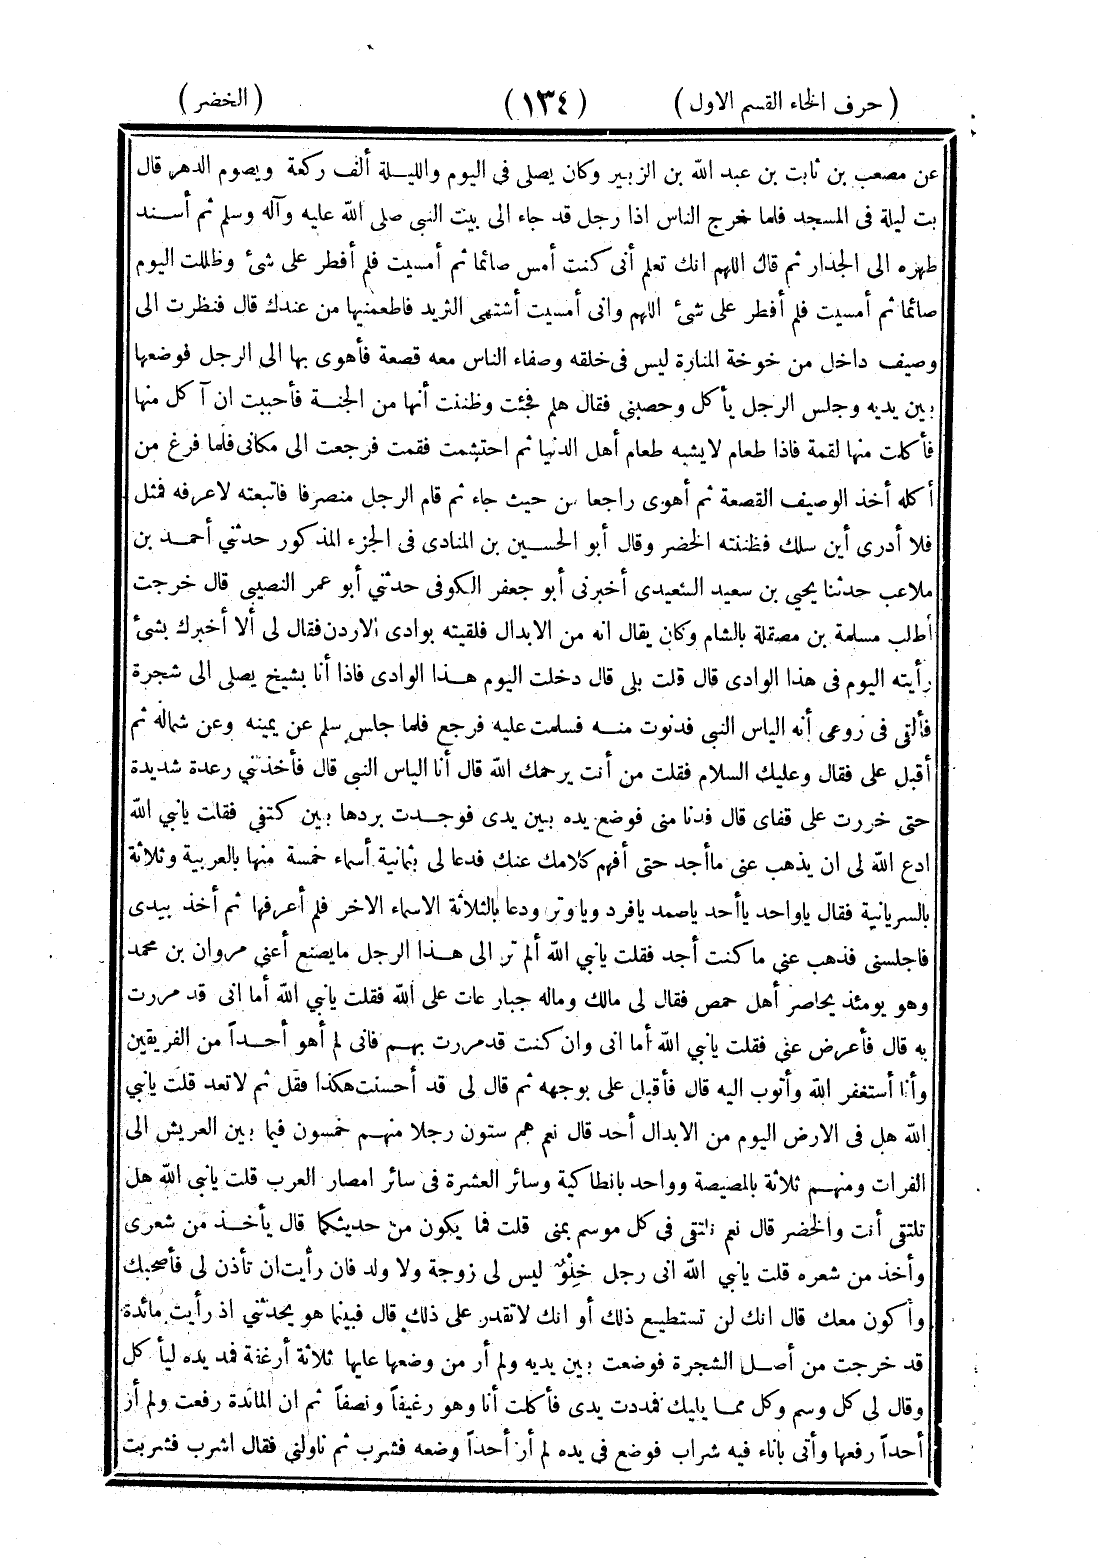 (حرف الخاء القسم الاول) (١٣٤) (الخضر)
عن مصعب بن ثابت بن عبد الله بن الزبير وكان يصلى فى اليوم والليلة ألف ركعة ويصوم الدهر قال
بت ليلة فى المسجد فلما خرج الناس اذا رجل قد جاء الى بيت النبى صلى الله عليه وآله وسلم ثم أسند
ظهره الى الجدار ثم قال اللهم انك تعلم أنى كنت أمس صائما ثم أمسيت فلم أفطر على شئ وظللت اليوم
صائما ثم أمسيت فلم أفطر على شئ اللهم وانى أمسيت أشتهى الثريد فاطعمنيها من عندك قال فنظرت الى
وصيف داخل من خوخة المنارة ليس فى خلقه وصفاء الناس معه قصعة فأهوى بها الى الرجل فوضعها
بين يديه وجلس الرجل يأكل وحصبنى فقال هلم فجئت وظننت أنها من الجنة فأحببت ان آكل منها
فأكلت منها لقمة فاذا طعام لايشبه طعام أهل الدنيا ثم احتشمت فقمت فرجعت الى مكانى فلما فرغ من
أكله أخذ الوصيف القصعة ثم أهوى راجعا من حيث جاء ثم قام الرجل منصرفا فاتبعته لاعرفه فمثل
فلا أدرى أين سلك فظننته الخضر وقال أبو الحسين بن المنادى فى الجزء المذكور حدثنى أحمد بن
ملاعب حدثنا يحيى بن سعيد السعيدى أخبرنى أبو جعفر الكوفى حدثنى أبو عمر النصيبى قال خرجت
أطلب مسلمة بن مصقلة بالشام وكان يقال انه من الابدال فلقيته بوادى الاردن فقال لى ألا أخبرك بشئ
رأيته اليوم فى هذا الوادى قال قلت بلى قال دخلت اليوم هذا الوادى فاذا أنا بشيخ يصلى الى شجرة
فألقى فى روعى أنه الياس النبى فدنوت منه فسلمت عليه فرجع فلما جلس سلم عن يمينه وعن شماله ثم
أقبل على فقال وعليك السلام فقلت من أنت يرحمك الله قال أنا الياس النبى قال فأخذتنى رعدة شديدة
حتى خررت على قفاى قال فدنا منى فوضع يده بين يدى فوجدت بردها بين كتفى فقلت يانبى الله
ادع الله لى ان يذهب عنى ماأجد حتى أفهم كلامك عنك فدعا لى بثمانية أسماء خمسة منها بالعربية وثلاثة
بالسريانية فقال ياواحد ياأحد ياصمد يافرد وياوتر ودعا بالثلاثة الاسماء الاخر فلم أعرفها ثم أخذ بيدى
فاجلسنى فذهب عنى ماكنت أجد فقلت يانبى الله ألم تر الى هذا الرجل مايصنع أعنى مروان بن محمد
وهو يومئذ يحاصر أهل حمص فقال لى مالك وماله جبار عات على الله فقلت يانبى الله أما انى قد مررت
به قال فأعرض عنى فقلت يانبى الله أما انى وان كنت قدمررت بهم فانى لم أهو أحداً من الفريقين
وأنا أستغفر الله وأتوب اليه قال فأقبل على بوجهه ثم قال لى قد أحسنت هكذا فقل ثم لاتعد قلت يانبى
الله هل فى الارض اليوم من الابدال أحد قال نعم هم ستون رجلا منهم خمسون فيما بين العريش الى
الفرات ومنهم ثلاثة بالمصيصة وواحد بانطاكية وسائر العشرة فى سائر امصار العرب قلت يانبى الله هل
تلتقى أنت والخضر قال نعم نلتقى فى كل موسم بمنى قلت فما يكون من حديثكما قال يأخذ من شعرى
وأخذ من شعره قلت يانبى الله انى رجل خِلْوٌ ليس لى زوجة ولا ولد فان رأيت ان تأذن لى فأصحبك
وأكون معك قال انك لن تستطيع ذلك أو انك لاتقدر على ذلك قال فبينما هو يحدثنى اذ رأيت مائدة
قد خرجت من أصل الشجرة فوضعت بين يديه ولم أر من وضعها عليها ثلاثة أرغفة فمد يده ليأكل
وقال لى كل وسم وكل مما يليك فمددت يدى فأكلت أنا وهو رغيفاً ونصفاً ثم ان المائدة رفعت ولم أر
أحداً رفعها وأتى باناء فيه شراب فوضع فى يده لم أر أحداً وضعه فشرب ثم ناولنى فقال اشرب فشربت